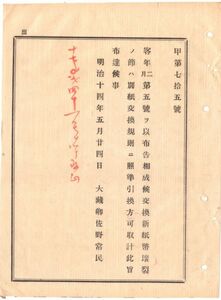 甲第七拾五號
客年二月第五號ヲ以布告相成候交換新紙幣壞裂
ノ節ハ別紙交換規則ニ照準引換方可取計此旨
布達候事
明治十四年五月廿四日 大藏卿佐野常民